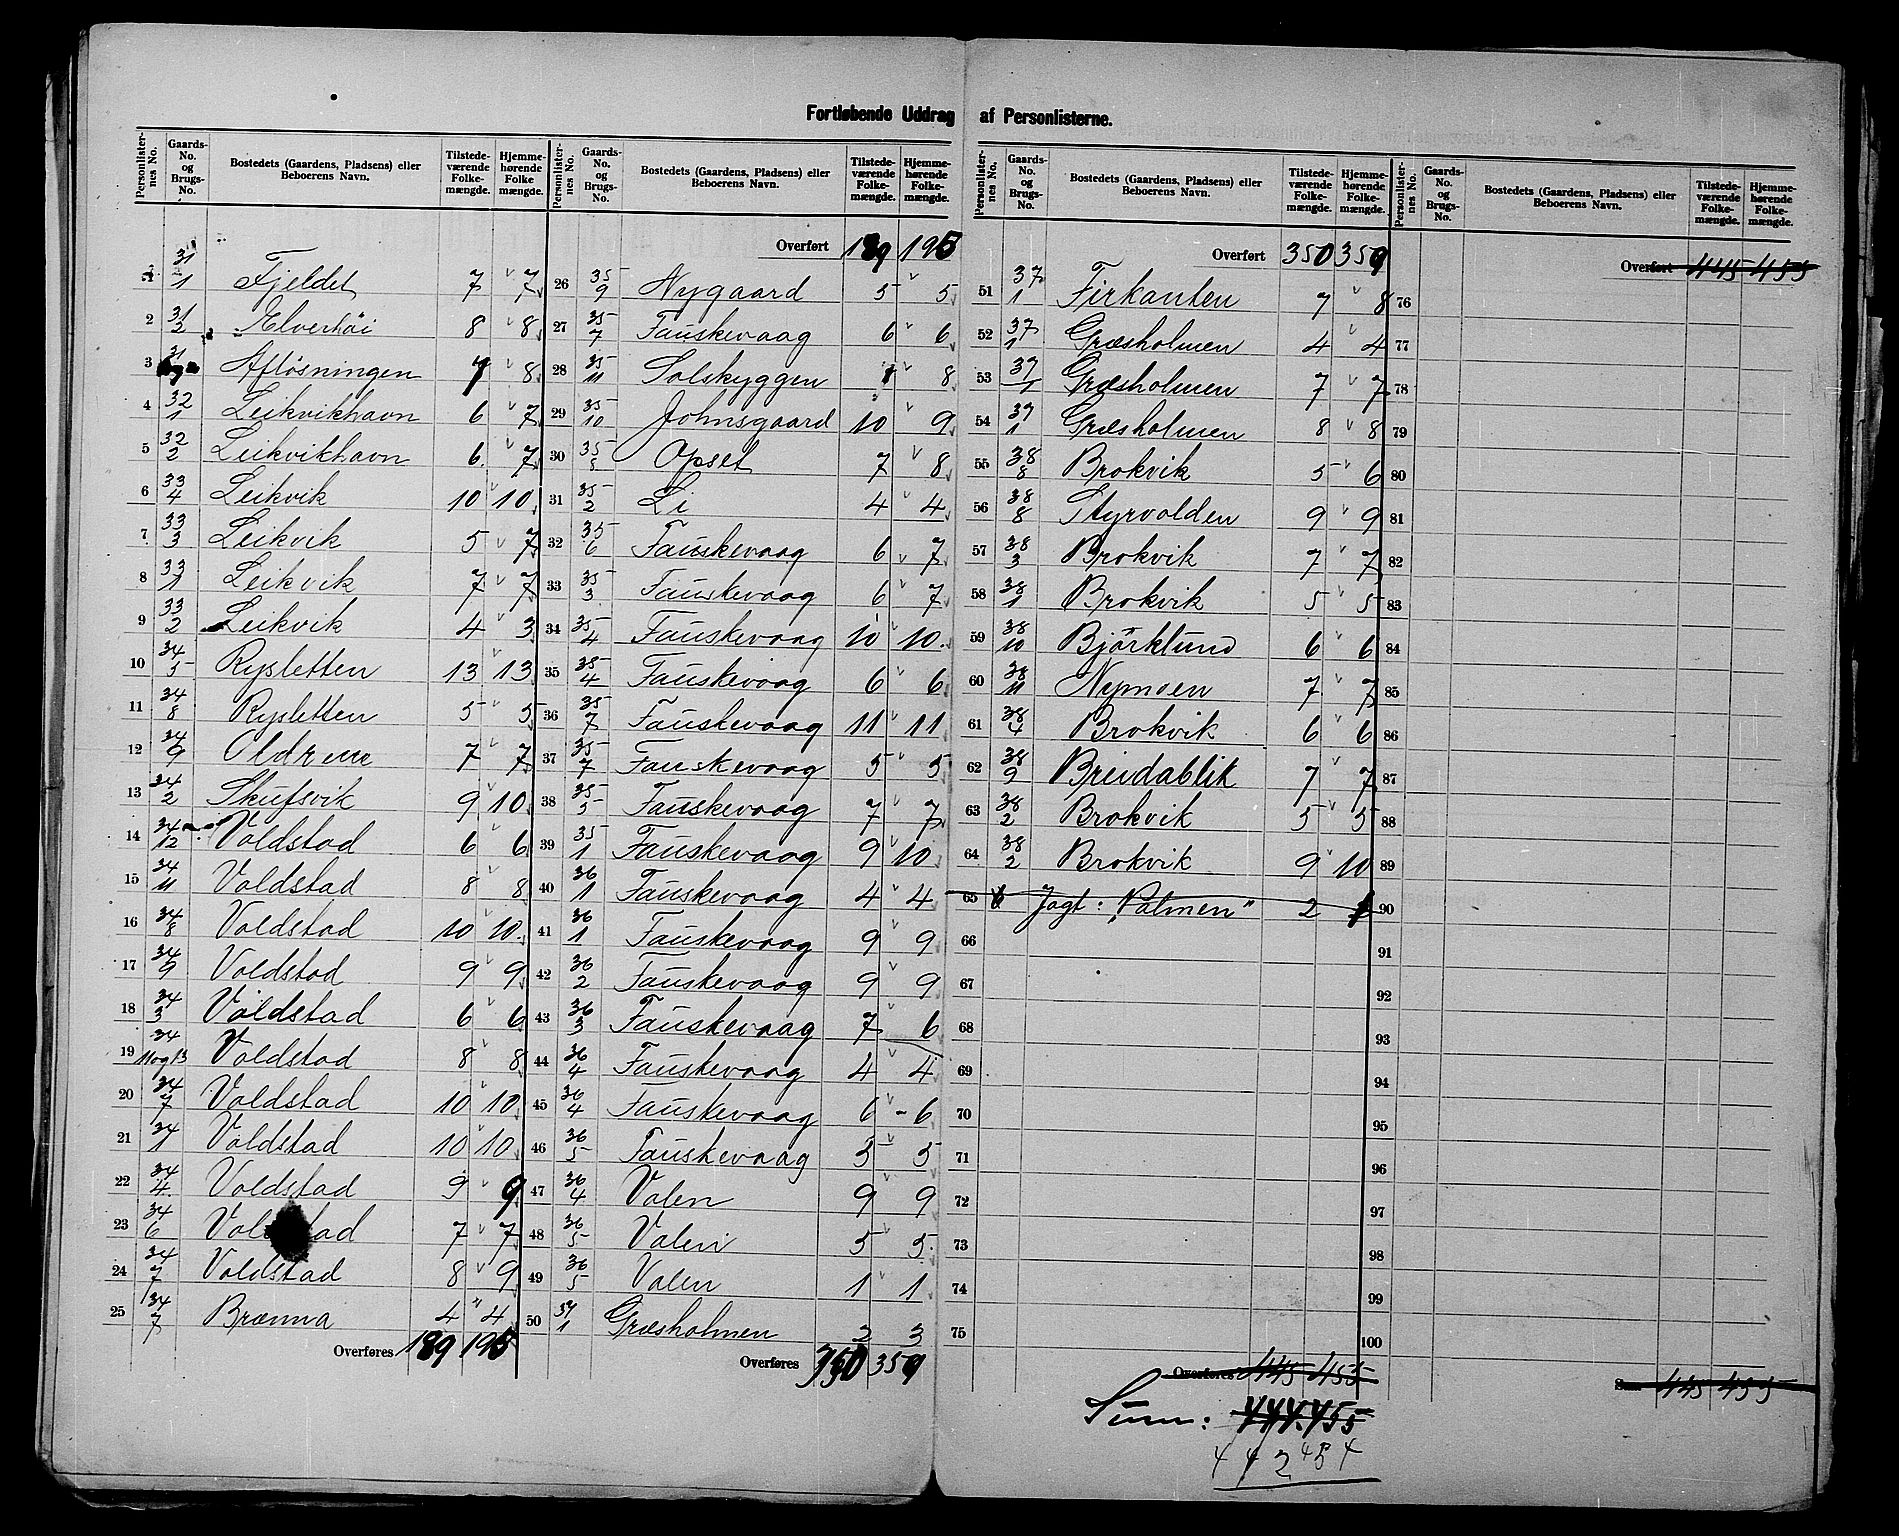 Fortløbende Uddrag af Personlisterne.
Personlisternes No. Gaards-No. og Brugs-No. Bostedets (Gaardens, Pladsens) eller Beboerens Navn. Tilstedeværende Folkemængde. Hjemmehørende Folkemængde.
1 31/1 Fjeldet 7 7
2 31/2 Elverhöi 8 8
3 31 Afløsningen 7 8
4 32/1 Leikvikhavn 6 7
5 32/2 Leikvikhavn 6 7
6 33/4 Leikvik 10 10
7 33/3 Leikvik 5 7
8 33/1 Leikvik 7 7
9 33/2 Leikvik 4 3
10 34/5 Rysletten 13 13
11 34/8 Rysletten 5 5
12 34/9 Oldrene 7 7
13 34/2 Skufsvik 9 10
14 34/12 Voldstad 6 6
15 34/11 Voldstad 8 8
16 34/8 Voldstad 10 10
17 34/9 Voldstad 9 9
18 34/3 Voldstad 6 6
19 34/11 og 13 Voldstad 8 8
20 34/7 Voldstad 10 10
21 34/1 Voldstad 10 10
22 34/4 Voldstad 9 9
23 34/6 Voldstad 7 7
24 34/7 Voldstad 8 9
25 34/7 Brænna 4 4
Overføres 189 195
Personlisternes No. Gaards-No. og Brugs-No. Bostedets (Gaardens, Pladsens) eller Beboerens Navn. Tilstedeværende Folkemængde. Hjemmehørende Folkemængde.
Overført 189 195
26 35/9 Nygaard 5 5
27 35/7 Fauskevaag 6 6
28 35/11 Solskyggen 8
29 35/10 Johnsgaard 10 9
30 35/8 Opset 7 8
31 35/2 Li 4 4
32 35/6 Fauskevaag 6 7
33 35/3 Fauskevaag 6 7
34 35/4 Fauskevaag 10 10
35 35/4 Fauskevaag 6 6
36 35/7 Fauskevaag 11 11
37 35/7 Fauskevaag 5 5
38 35/5 Fauskevaag 7 7
39 35/1 Fauskevaag 9 10
40 36/1 Fauskevaag 4 4
41 36/1 Fauskevaag 9 9
42 36/2 Fauskevaag 9 9
43 36/3 Fauskevaag 7 6
44 36/4 Fauskevaag 4 4
45 36/4 Fauskevaag 6 - 6
46 36/5 Fauskevaag 5 5
47 36/4 Valen 9 9
48 36/5 Valen 5 5
49 36/5 Valen 1 1
50 37/1 Græsholmen 2 3
Overføres 350 359
Personlisternes No. Gaards-No. og Brugs-No. Bostedets (Gaardens, Pladsens) eller Beboerens Navn. Tilstedeværende Folkemængde. Hjemmehørende Folkemængde.
Overført 350 359
51 37/1 Firkanten 7 8
52 37/1 Græsholmen 4 4
53 37/1 Græsholmen 7 7
54 37/1 Græsholmen 8 8
55 38/8 Brokvik 5 6
56 38/8 Styrvolden 9 9
57 38/3 Brokvik 7 7
58 38/1 Brokvik 5 5
59 38/10 Björklund 6 6
60 38/11 Nymoen 7 7
61 38/4 Brokvik 6 6
62 38/9 Breidablik 7 7
63 38/2 Brokvik 5 5
64 38/2 Brokvik 9 10
65 Jagt: "Palmen" 2
66
67
68
69
70
71
72
73
74
75
Overføres 445 455
Sum: 444 455
442 454
Personlisternes No. Gaards-No. og Brugs-No. Bostedets (Gaardens, Pladsens) eller Beboerens Navn. Tilstedeværende Folkemængde. Hjemmehørende Folkemængde.
Overført 445 455
76
77
78
79
80
81
82
83
84
85
86
87
88
89
90
91
92
93
94
95
96
97
98
99
100
Sum 445 455